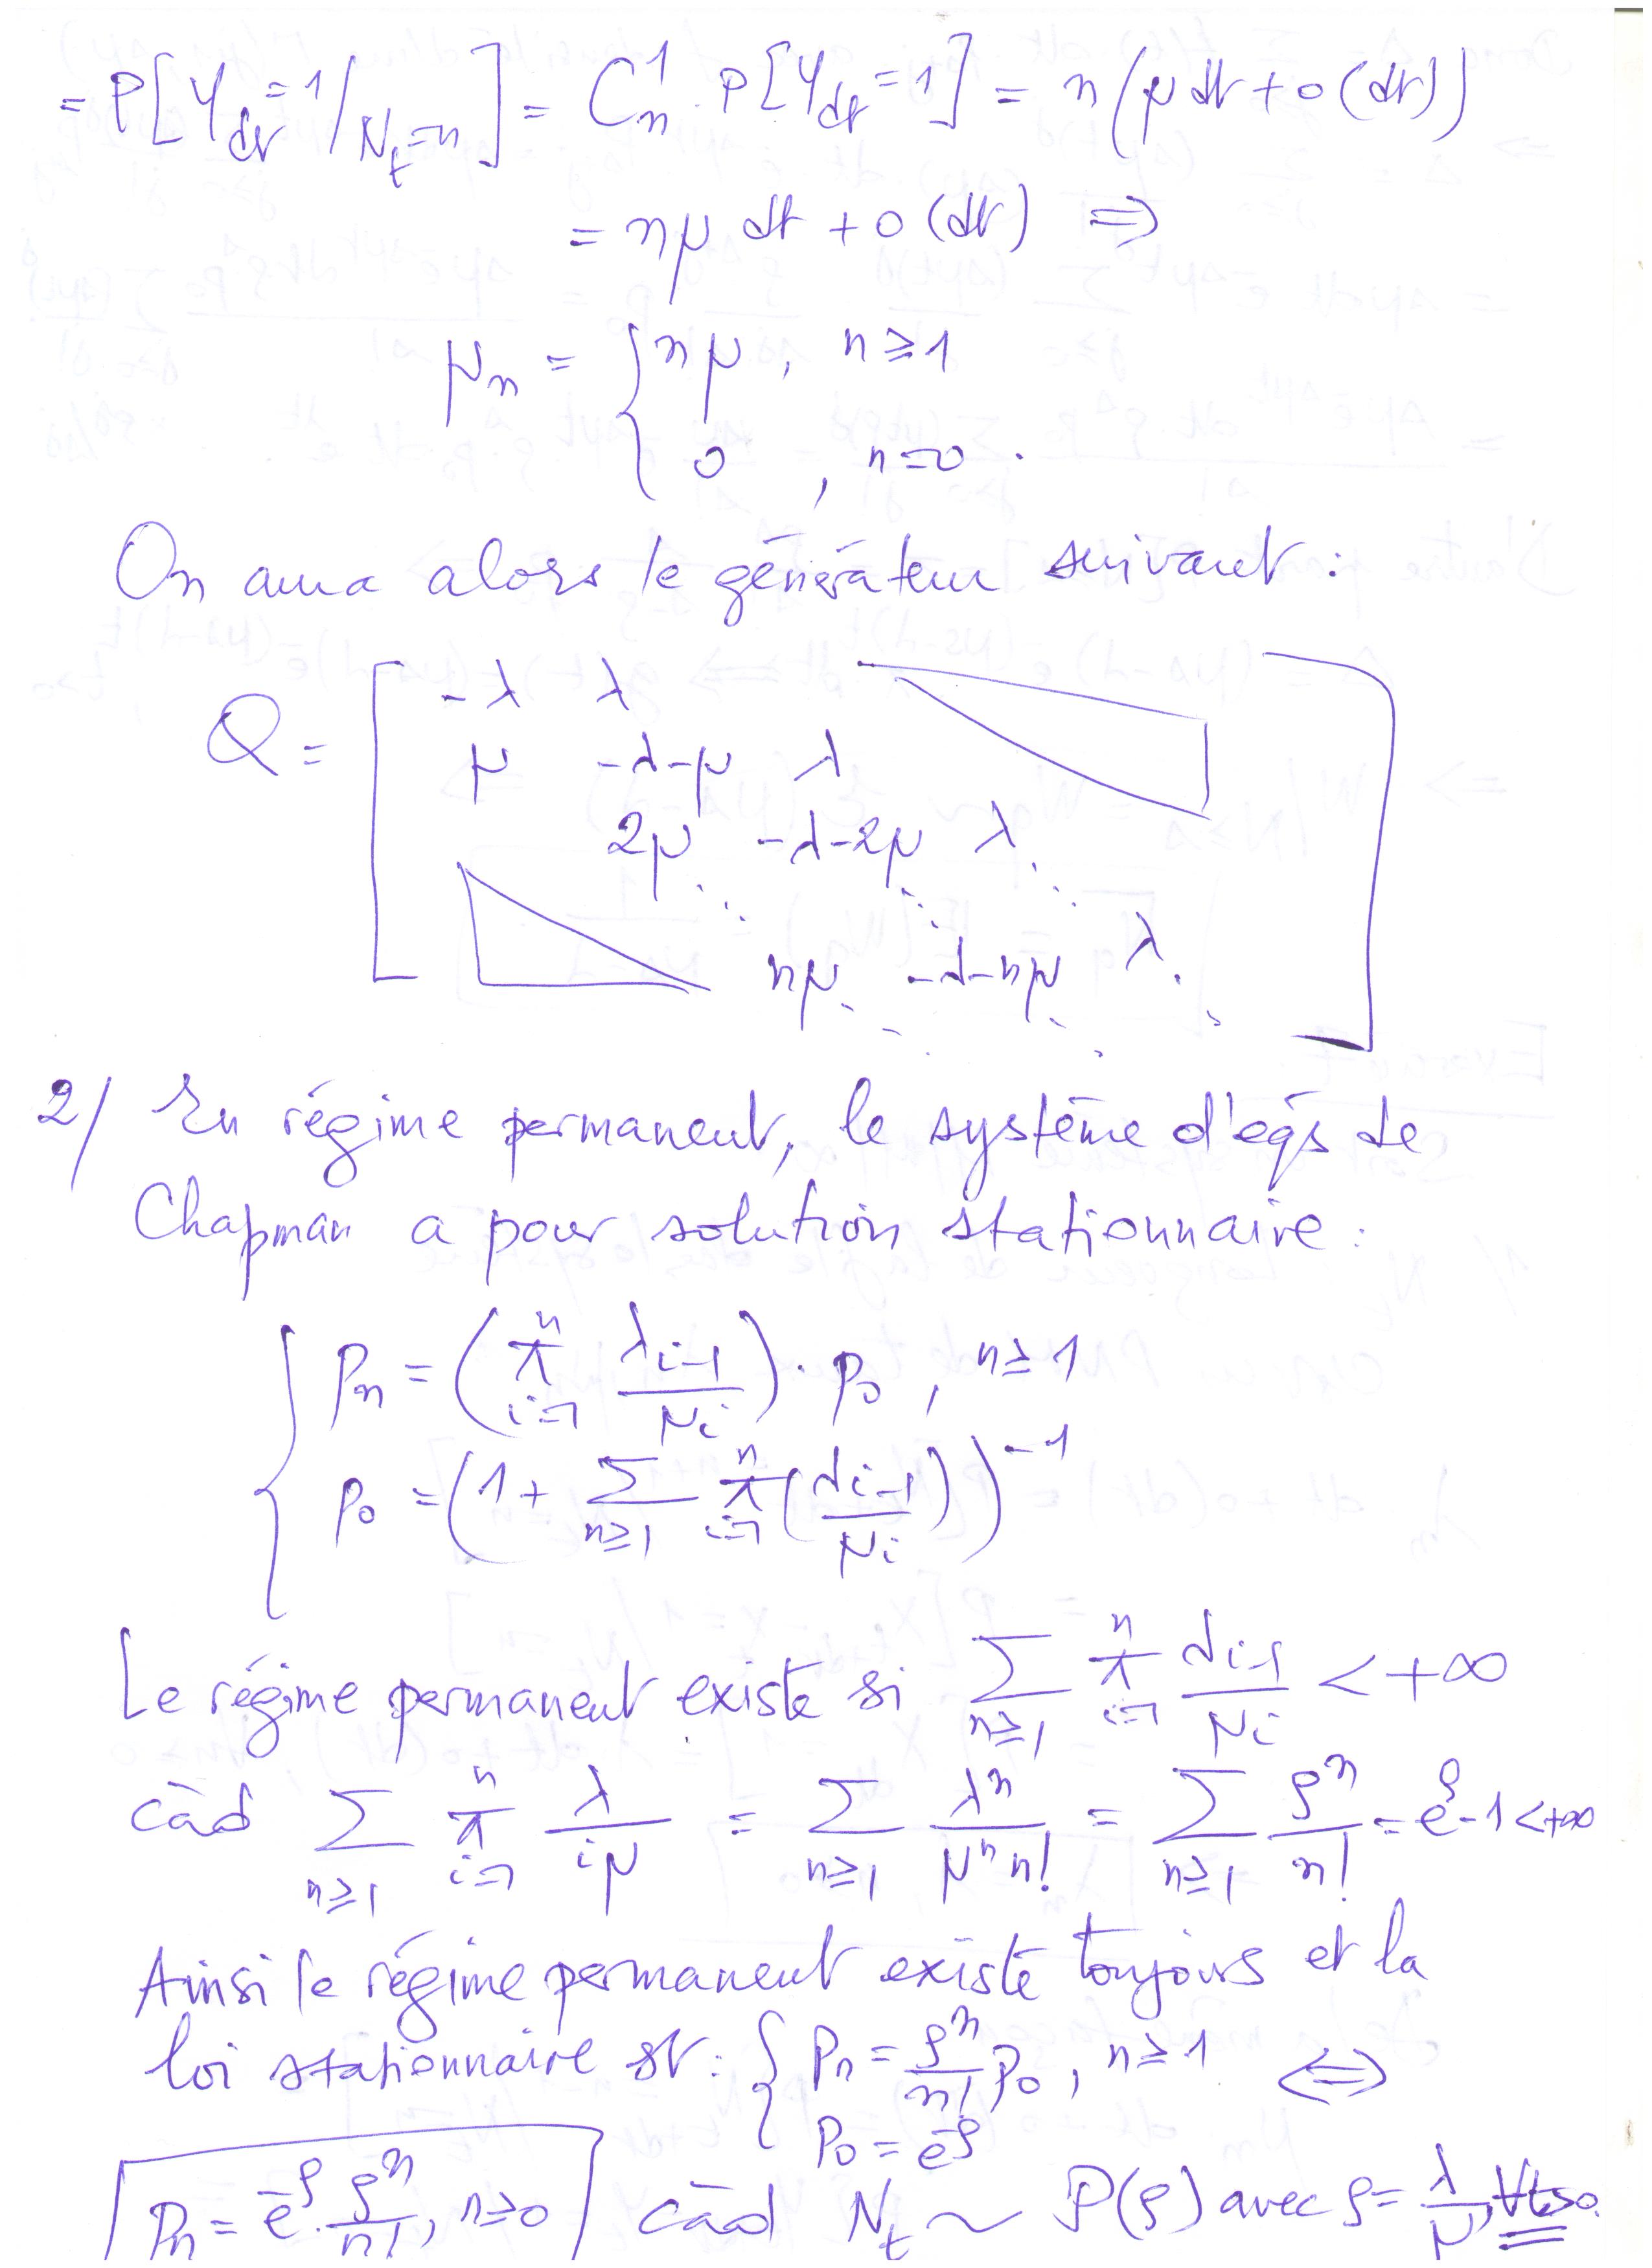 = P[Y_dt = 1 / N_t = n] = C_n^1 . P[Y_dt = 1] = n (μ dt + o(dt))
= nμ dt + o(dt) ⇒
μ_n = { nμ, n ≥ 1
0 , n = 0 .
On aura alors le générateur suivant :
Q = [ -λ λ
μ -λ-μ λ
2μ -λ-2μ λ
nμ -λ-nμ λ ]
2/ En régime permanent, le système d'éqs de
Chapman a pour solution stationnaire :
{ p_n = ( π_{i=1}^{n} λ_{i-1} / μ_i ) . p_0 , n ≥ 1
p_0 = ( 1 + Σ_{n≥1} π_{i=1}^{n} ( λ_{i-1} / μ_i ) )^{-1}
Le régime permanent existe si Σ_{n≥1} π_{i=1}^{n} λ_{i-1} / μ_i < +∞
càd Σ_{n≥1} π_{i=1}^{n} λ / iμ = Σ_{n≥1} λ^n / μ^n n! = Σ_{n≥1} ρ^n / n! = e^ρ - 1 < +∞
Ainsi le régime permanent existe toujours et la
loi stationnaire est : { p_n = ρ^n / n! p_0 , n ≥ 1 ⇔
p_0 = e^{-ρ}
p_n = e^{-ρ} . ρ^n / n! , n ≥ 0 càd N_t ~ P(ρ) avec ρ = λ / μ, ∀t>0.